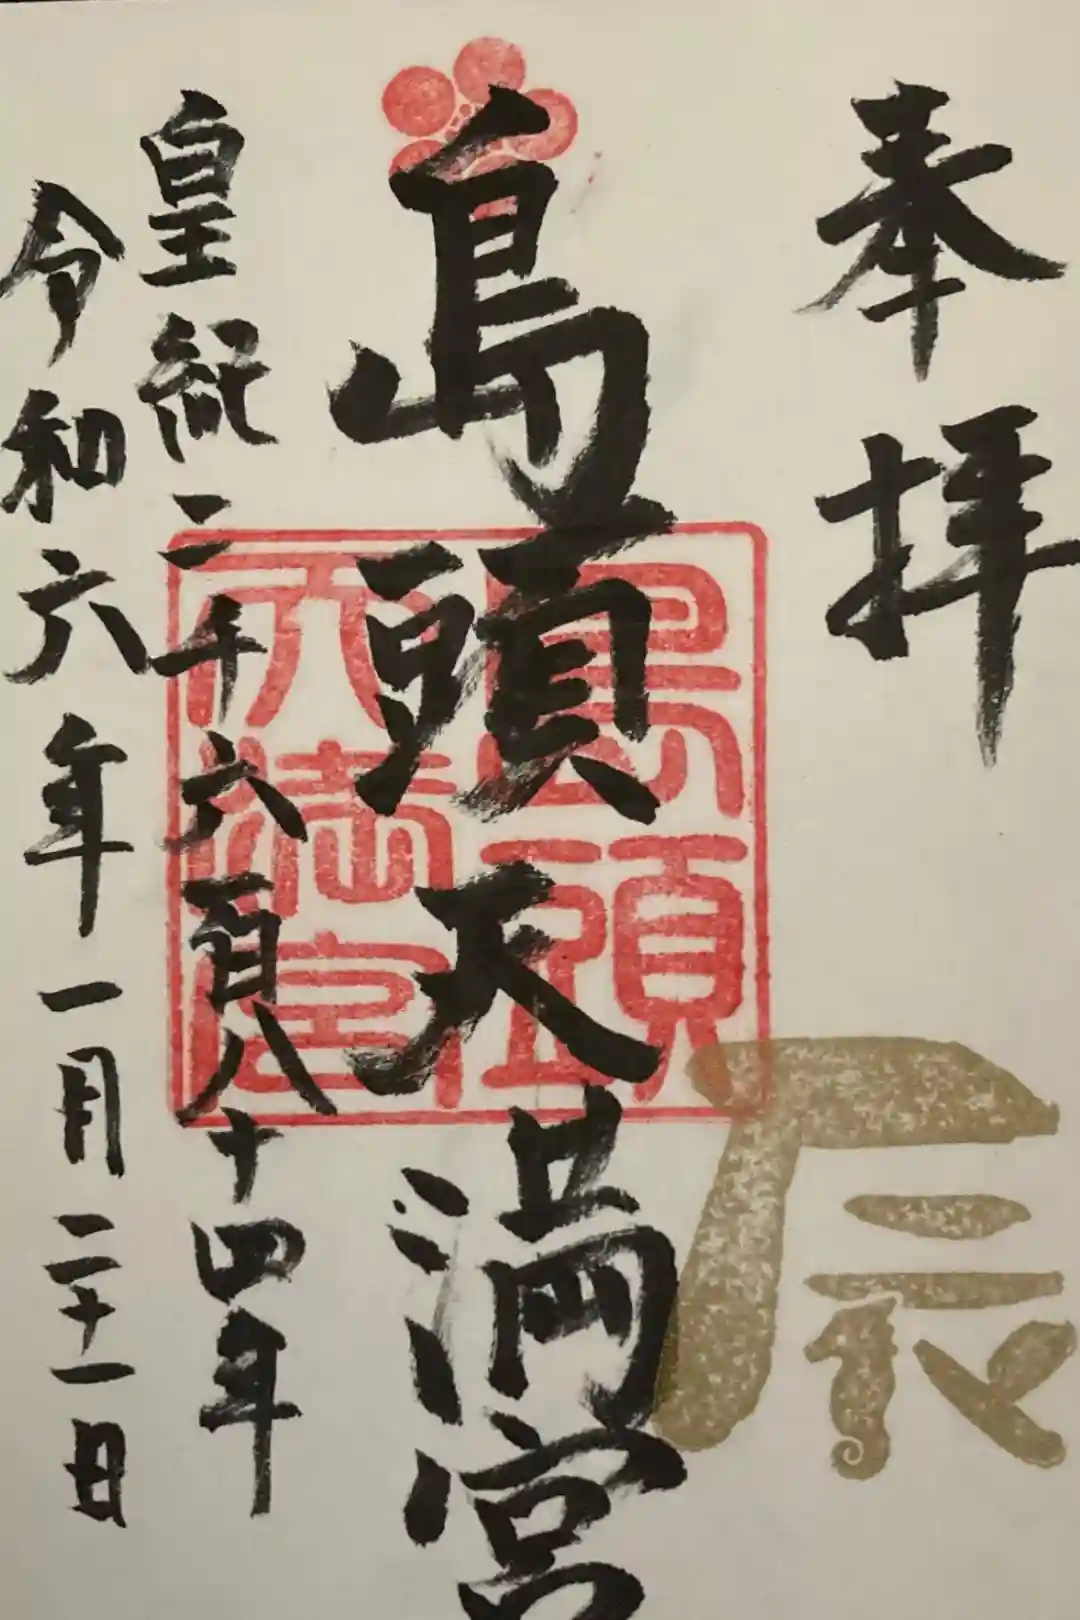 奉拝
島頭天満宮
皇紀二千六百八十四年
令和六年一月二十一日
島頭
天満宮
辰